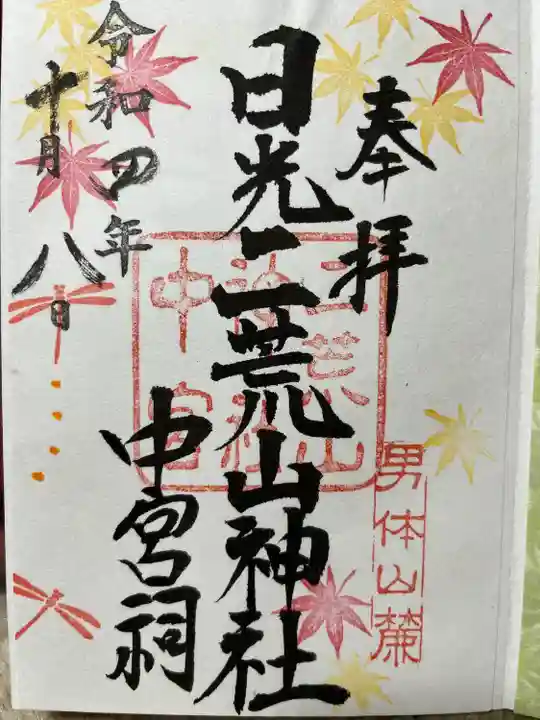 奉拝
男体山麓
日光二荒山神社
中宮祠
二荒山
神社
中宮
令和四年
十月八日